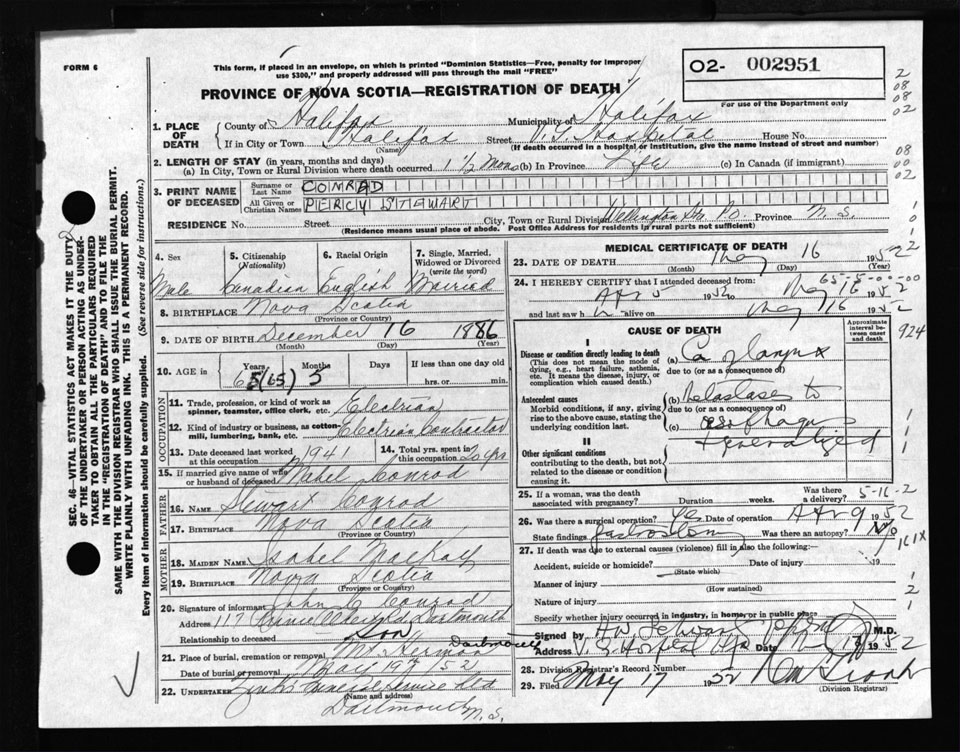 FORM 6
This form, if placed in an envelope, on which is printed "Dominion Statistics—Free, penalty for improper
use $300," and properly addressed will pass through the mail "FREE"
O2- 002951
PROVINCE OF NOVA SCOTIA—REGISTRATION OF DEATH
For use of the Department only
2
08
08
02
1. PLACE OF DEATH
County of Halifax Municipality of Halifax
If in City or Town Halifax Street V.G. Hospital House No.
(Name) (If death occurred in a hospital or institution, give the name instead of street and number)
2. LENGTH OF STAY (in years, months and days)
(a) In City, Town or Rural Division where death occurred 1 1/2 Mons (b) In Province Life (c) In Canada (if immigrant)
08
00
02
3. PRINT NAME OF DECEASED
Surname or Last Name CONRAD
All Given or Christian Names PERCY STEWART
RESIDENCE No. Street City, Town or Rural Division Wellington Sta. P.O. Province N.S.
(Residence means usual place of abode. Post Office Address for residents in rural parts not sufficient)
SEC. 46—VITAL STATISTICS ACT MAKES IT THE DUTY
OF THE UNDERTAKER OR PERSON ACTING AS UNDER-
TAKER TO OBTAIN ALL THE PARTICULARS REQUIRED
IN THE "REGISTRATION OF DEATH" AND TO FILE THE
SAME WITH THE DIVISION REGISTRAR WHO SHALL ISSUE THE BURIAL PERMIT.
WRITE PLAINLY WITH UNFADING INK. THIS IS A PERMANENT RECORD.
Every item of information should be carefully supplied. (See reverse side for instructions.)
4. Sex 5. Citizenship (Nationality) 6. Racial Origin 7. Single, Married, Widowed or Divorced (write the word)
Male Canadian English Married
8. BIRTHPLACE Nova Scotia
(Province or Country)
9. DATE OF BIRTH December 16 1886
(Month) (Day) (Year)
10. AGE in Years Months Days If less than one day old
65 (65) 5 hrs. or min.
OCCUPATION
11. Trade, profession, or kind of work as
spinner, teamster, office clerk, etc. Electrian
12. Kind of industry or business, as cotton-
mill, lumbering, bank, etc. Electrian Contractor
13. Date deceased last worked at this occupation 1941
14. Total yrs. spent in this occupation 20 yrs
15. If married give name of wife
or husband of deceased Mabel Conrad
FATHER
16. Name Stewart Conrad
17. Birthplace Nova Scotia
(Province or Country)
MOTHER
18. Maiden Name Isabel MacKay
19. Birthplace Nova Scotia
(Province or Country)
20. Signature of informant John C Conrad
Address 117 Dartmouth
Relationship to deceased Son
21. Place of burial, cremation or removal Mt. Hermon Dartmouth
Date of burial or removal May 19th 52
22. Undertaker Funeral Service Ltd
(Name and address)
Dartmouth N.S.
MEDICAL CERTIFICATE OF DEATH
23. DATE OF DEATH May 16 1952
(Month) (Day) (Year)
65-5-00-00
24. I HEREBY CERTIFY that I attended deceased from:
Apr 5 1952 to May 16 1952
and last saw h alive on May 16 1952
CAUSE OF DEATH
Approximate interval between onset and death
924
I
Disease or condition directly leading to death
(This does not mean the mode of
dying, e.g., heart failure, asthenia,
etc. It means the disease, injury, or
complication which caused death.)
(a) Ca larynx
due to (or as a consequence of)
Antecedent causes
Morbid conditions, if any, giving
rise to the above cause, stating the
underlying condition last.
(b) Metastases to
due to (or as a consequence of)
(c) esophagus
+ generalized
II
Other significant conditions
contributing to the death, but not
related to the disease or condition
causing it.
25. If a woman, was the death
associated with pregnancy? Duration weeks. Was there a delivery?
5-16-2
26. Was there a surgical operation? Yes Date of operation Apr 9 1952
State findings gastrostomy Was there an autopsy? No
161X
27. If death was due to external causes (violence) fill in also the following:—
Accident, suicide or homicide? Date of injury 19
(State which)
Manner of injury
(How sustained)
Nature of injury
Specify whether injury occurred in industry, in home, or in public place
Signed by M.D.
Address V.G. Hospital Hfx Date May 1952
28. Division Registrar's Record Number
29. Filed May 17 1952
(Division Registrar)